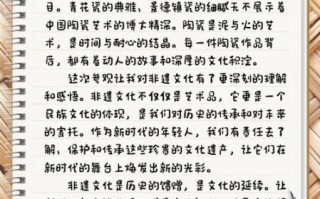 目。青花瓷的典雅、景德镇瓷的细腻无不展示着
中国陶瓷艺术的博大精深。陶瓷是泥与火的艺
术,是时间与耐心的结晶。每一件陶瓷作品背
后,都有着动人的故事和深厚的文化积淀。
这次参观让我对非遗文化有了更深刻的理解
和感悟。非遗文化不仅仅是艺术品,它更是一个
民族文化的体现,是我们对历史的传承和对未来
的寄托。作为新时代的年轻人,我们有责任去了
解、保护和传承这些珍贵的文化遗产,让它们在
新时代的舞台上焕发出新的光彩。
非遗文化是历史的馈赠,是文化的延续。让